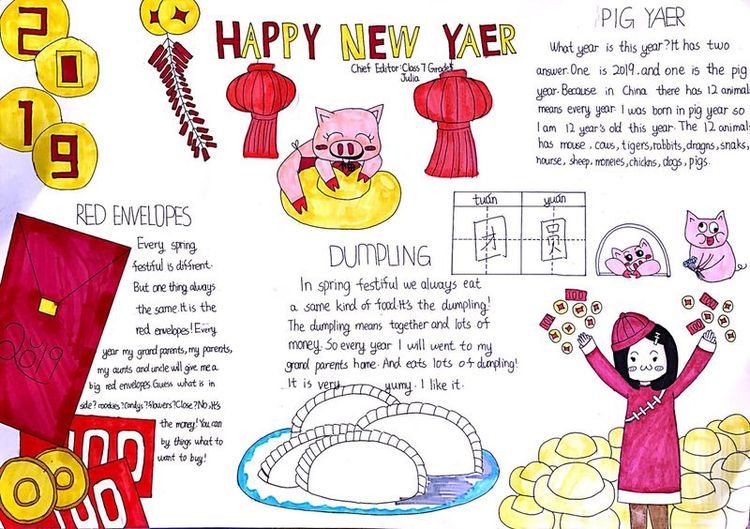 2019
HAPPY NEW YAER
Chief Editor:Class 7 Grade5
Julia
PIG YAER
What year is this year?It has two
answer.One is 2019.and one is the pig
year.Because in China there has 12 animal
means every year.I was born in pig year so
I am 12 year's old this year.The 12 animal
has mouse, cows, tigers,rabbits,dragns,snaks,
hourse, sheep, moneies, chickns, dogs, pigs.
tuán yuán
团 圆
RED ENVELOPES
Every spring
festiful is diffrent.
But one thing always
the same.It is the
red envelopes!Every
year my grand parents, my parents,
my aunts and uncle will give me a
big red envelopes.Guess what is in
side?coookies?Candys?Flowers?Close?No.It's
the money!You can
by things what to
want to buy!
2019
100
100
DUMPLING
In spring festiful we always eat
a same kind of food.It's the dumpling!
The dumpling means together and lots of
money. So every year I will went to my
grand parents home. And eats lots of dumpling!
It is very yumy. I like it.
100
100